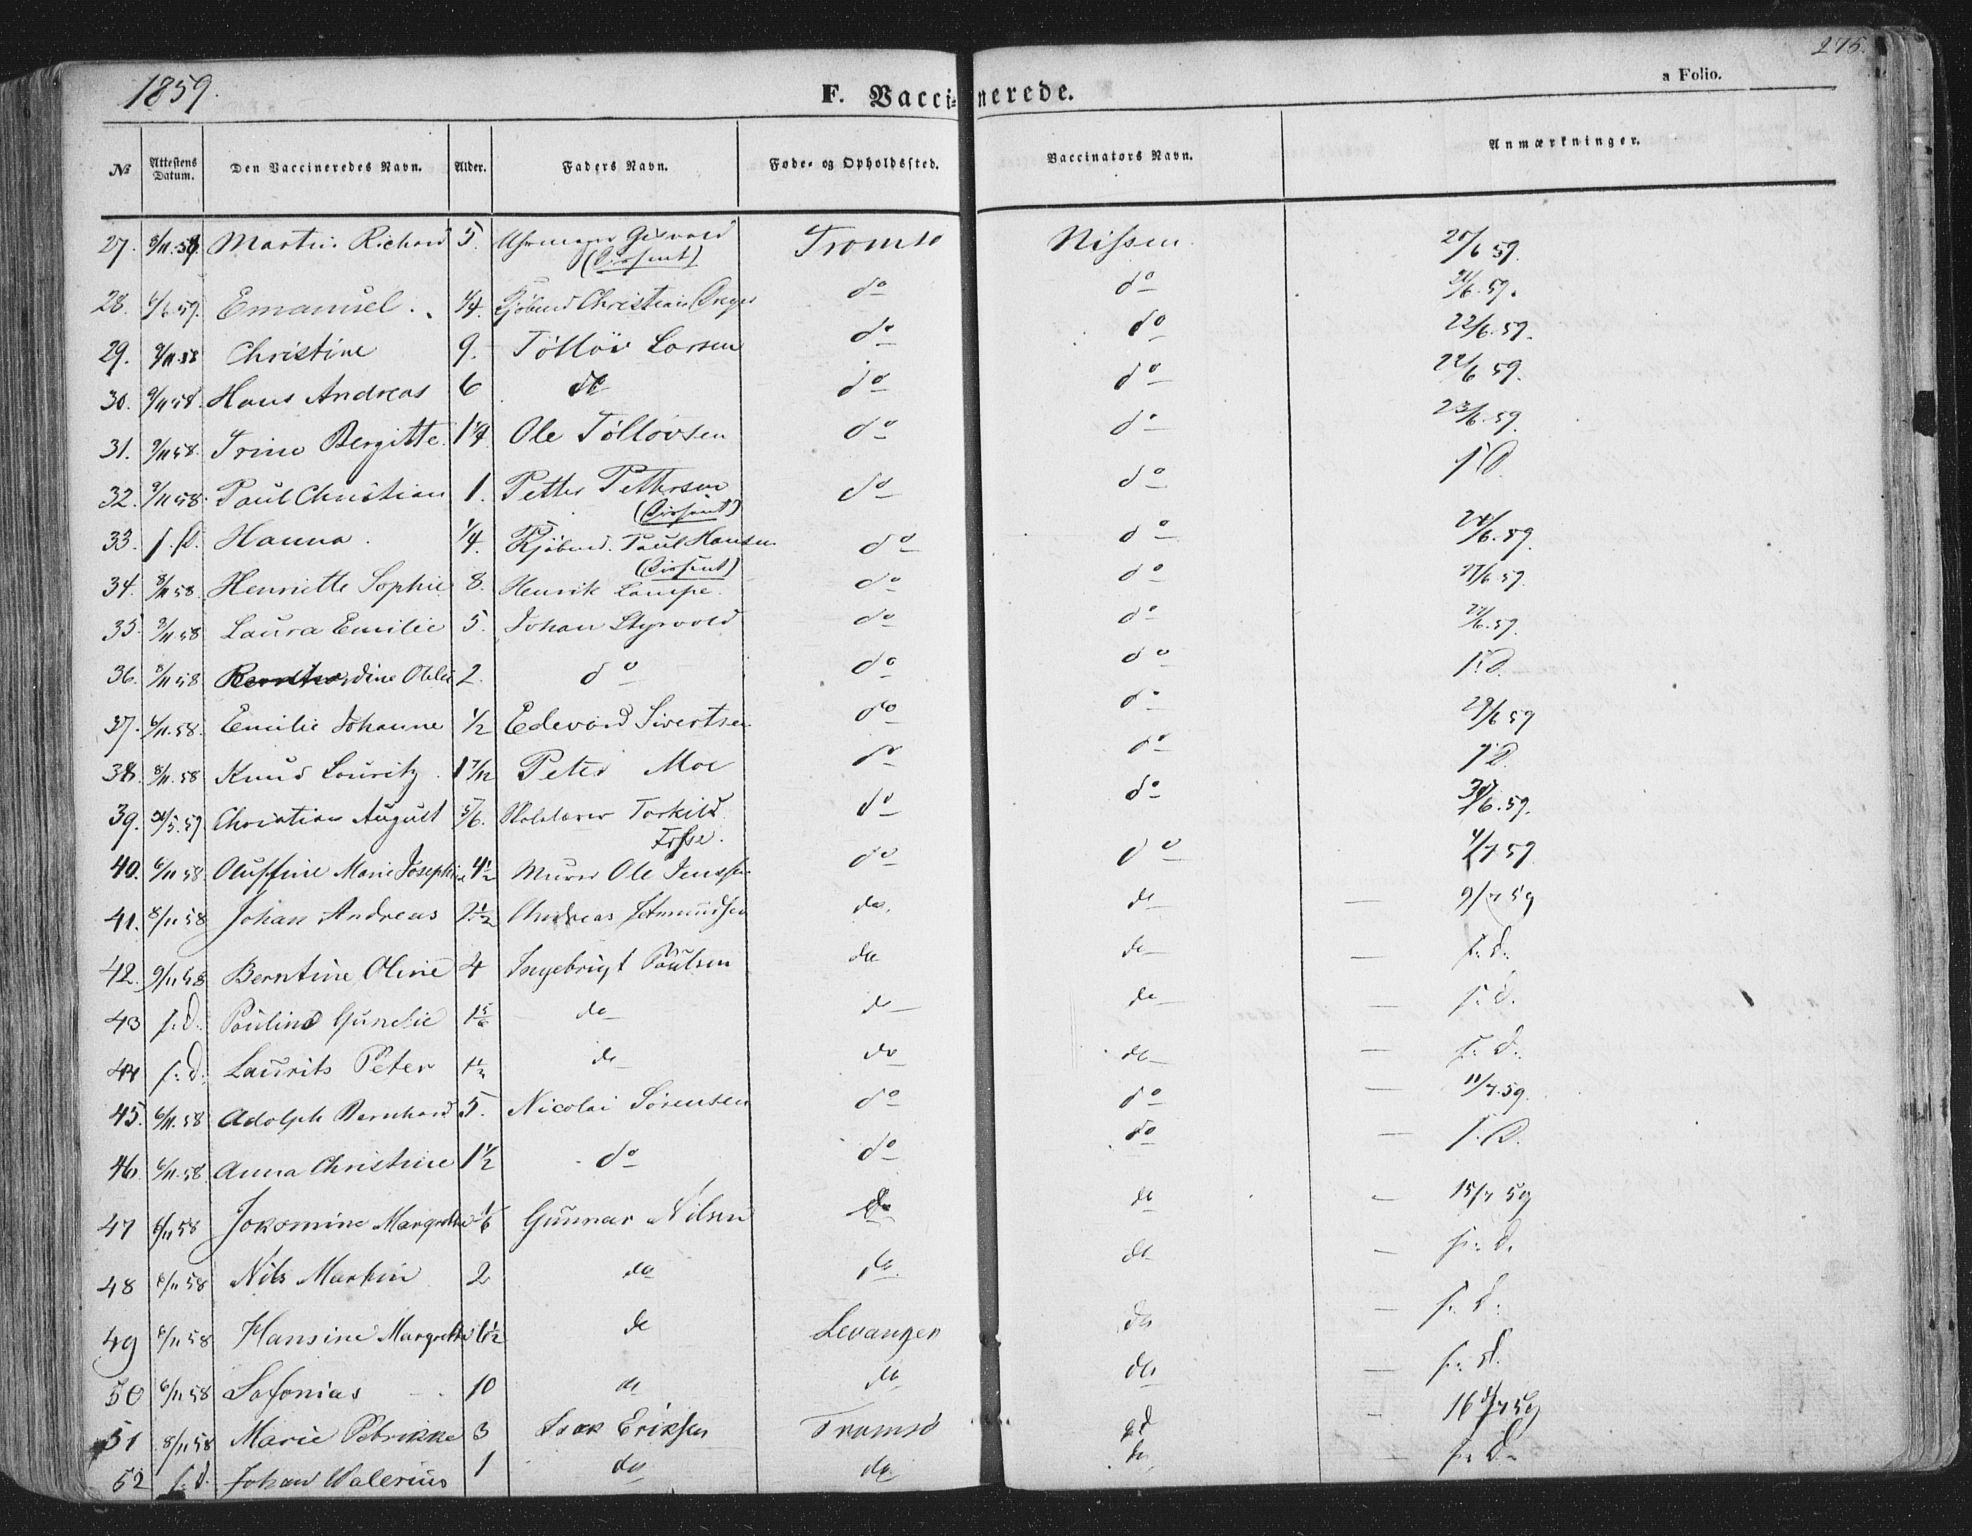 1859.
F. Vaccinerede.
a Folio.
275.
№ Attestens Datum. Den Vaccineredes Navn. Alder. Faders Navn. Føde- og Opholdssted. Vaccinators Navn. Anmærkninger.
27. Martin Richard 5. Tromsø Nissen 20/6 59.
28. 6/6 59. Emanuel. 1/4. Kjøbmd Christian Dreyer do do 21/6. 59.
29. 9/11 58 Christine 9. Tølløv Larsen do do 22/6. 59.
30. 9/11 58. Hans Andreas 6 do do do 22/6 59.
31. 9/11 58. Trine Bergitte 1 1/4 Ole Tølløvsen do do 23/6. 59.
32. 9/11 58. Paul Christian 1. Petter Pettersen do do s. D.
33. s. D. Hanna. 1/4. Kjøbmd. Paul Hansen do do 24/6. 59.
34. 8/11 58. Henriette Sophie 8. Henrik Lampe. do do 27/6. 59.
35. 9/11 58 Laura Emilie 5. Johan Styrvold do do 27/6. 59.
36. 8/11 58 dine Otilie 2. do do do s. D.
37. 6/11. 58. Emilie Johanne 1/2 Edevard Sivertsen do do 29/6 59
38. 8/11. 58 Knud Lauritz. 1 7/12 Peter Moe do do s. D.
39. 31/5. 59 Christian August 5/6. Torkild
Fosse. do do 30/6. 59.
40. 6/11 58. Oluffine Marie Josephine 4 1/2 Murer Ole Jenssen do do 4/7 59
41. 8/11 58 Johan Andreas 2 1/2 Andreas Edmundsen do. do — 9/7 59
42. 9/11 58 Berntine Oline 4 Ingebrigt Paulsen do do — s. d.
43 s. d. Pauline Gunelie 1 5/6 do do do — s. d.
44 s. d. Laurits Peter 1 1/2 do do do — s. d.
45. 6/11. 58 Adolph Bernhard 5. Nicolai Sörensen do do — 11/7. 59.
46. 6/11. 58. Anna Christine 1 1/2 do do do — s. D.
47 6/11 58 Jokomine Margrethe 1/6 Gunnar Nilsen do do — 15/7 59
48 6/11 58 Nils Martin 2 do do. do — s. d.
49 6/11 58 Hansine Margrethe 6 1/2 do Levanger do — s. d.
50 6/11 58 Sefonias 10 do do do — s. d.
51 8/11 58 Marie Petrikke 3 Isak Eriksen Tromsö gd — 16/7 59
52 s. d. Johan Walerius 1 do do. do s. d.